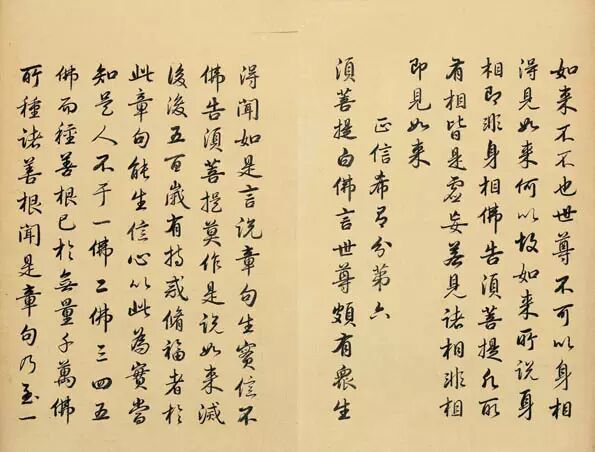 如来不不也世尊不可以身相
得見如来何以故如来所說身
相即非身相佛告須菩提凡所
有相皆是虛妄若見諸相非相
即見如来
正信希有分第六
須菩提白佛言世尊頗有衆生
得聞如是言說章句生實信不
佛告須菩提莫作是說如来滅
後後五百歲有持戒脩福者於
此章句能生信心以此為實當
知是人不于一佛二佛三四五
佛而種善根已於無量千萬佛
所種諸善根聞是章句乃至一